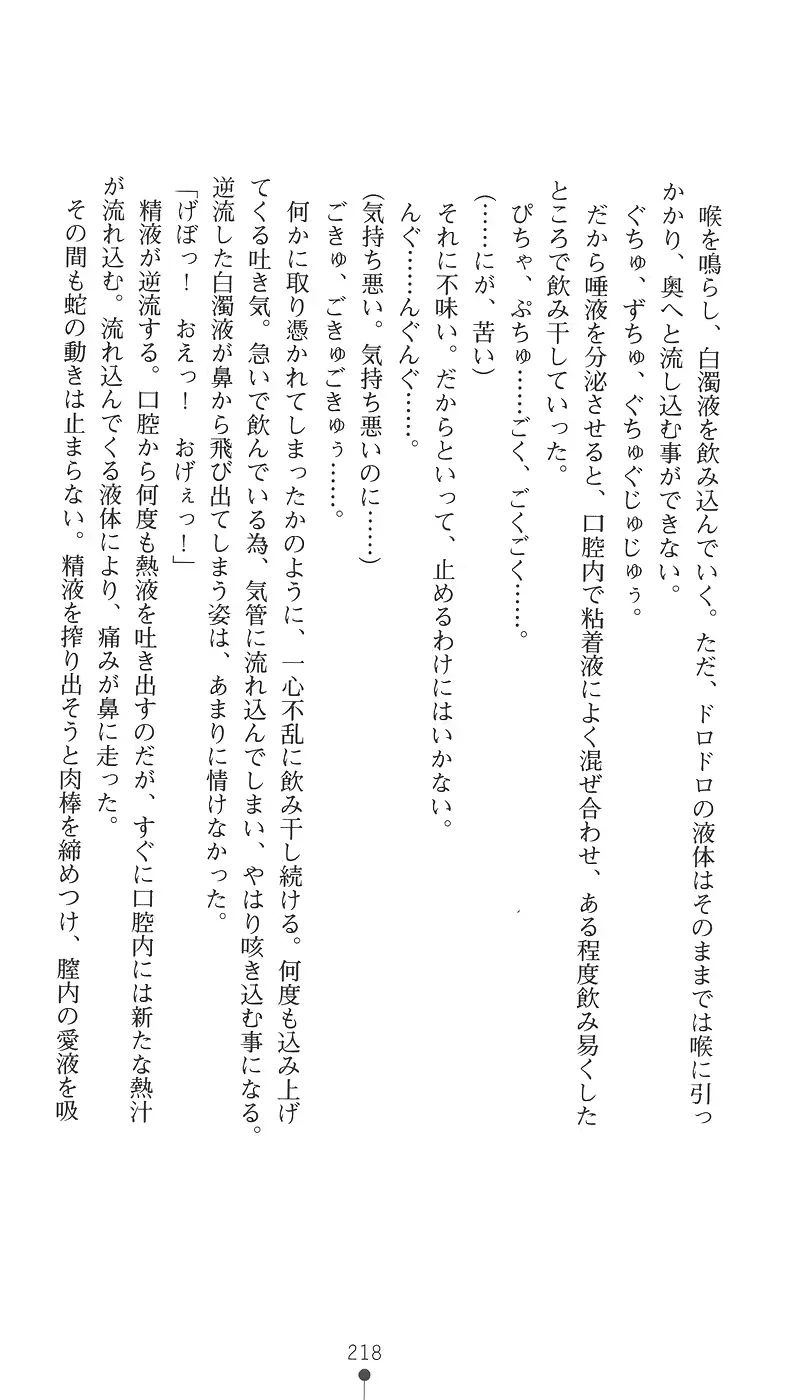 喉を鳴らし、白濁液を飲み込んでいく。ただ、ドロドロの液体はそのままでは喉に引っ
かかり、奥へと流し込む事ができない。
ぐちゅ、ずちゅ、ぐちゅぐじゅじゅぅ。
だから唾液を分泌させると、口腔内で粘着液によく混ぜ合わせ、ある程度飲み易くした
ところで飲み干していった。
ぴちゃ、ぷちゅ……ごく、ごくごく……。
(……にが、苦い)
それに不味い。だからといって、止めるわけにはいかない。
んぐ……んぐんぐ……。
(気持ち悪い。気持ち悪いのに……)
ごきゅ、ごきゅごきゅぅ……。
何かに取り憑かれてしまったかのように、一心不乱に飲み干し続ける。何度も込み上げ
てくる吐き気。急いで飲んでいる為、気管に流れ込んでしまい、やはり咳き込む事になる。
逆流した白濁液が鼻から飛び出てしまう姿は、あまりに情けなかった。
「げぼっ！　おえっ！　おげぇっ！」
精液が逆流する。口腔から何度も熱液を吐き出すのだが、すぐに口腔内には新たな熱汁
が流れ込む。流れ込んでくる液体により、痛みが鼻に走った。
その間も蛇の動きは止まらない。精液を搾り出そうと肉棒を締めつけ、膣内の愛液を吸
218